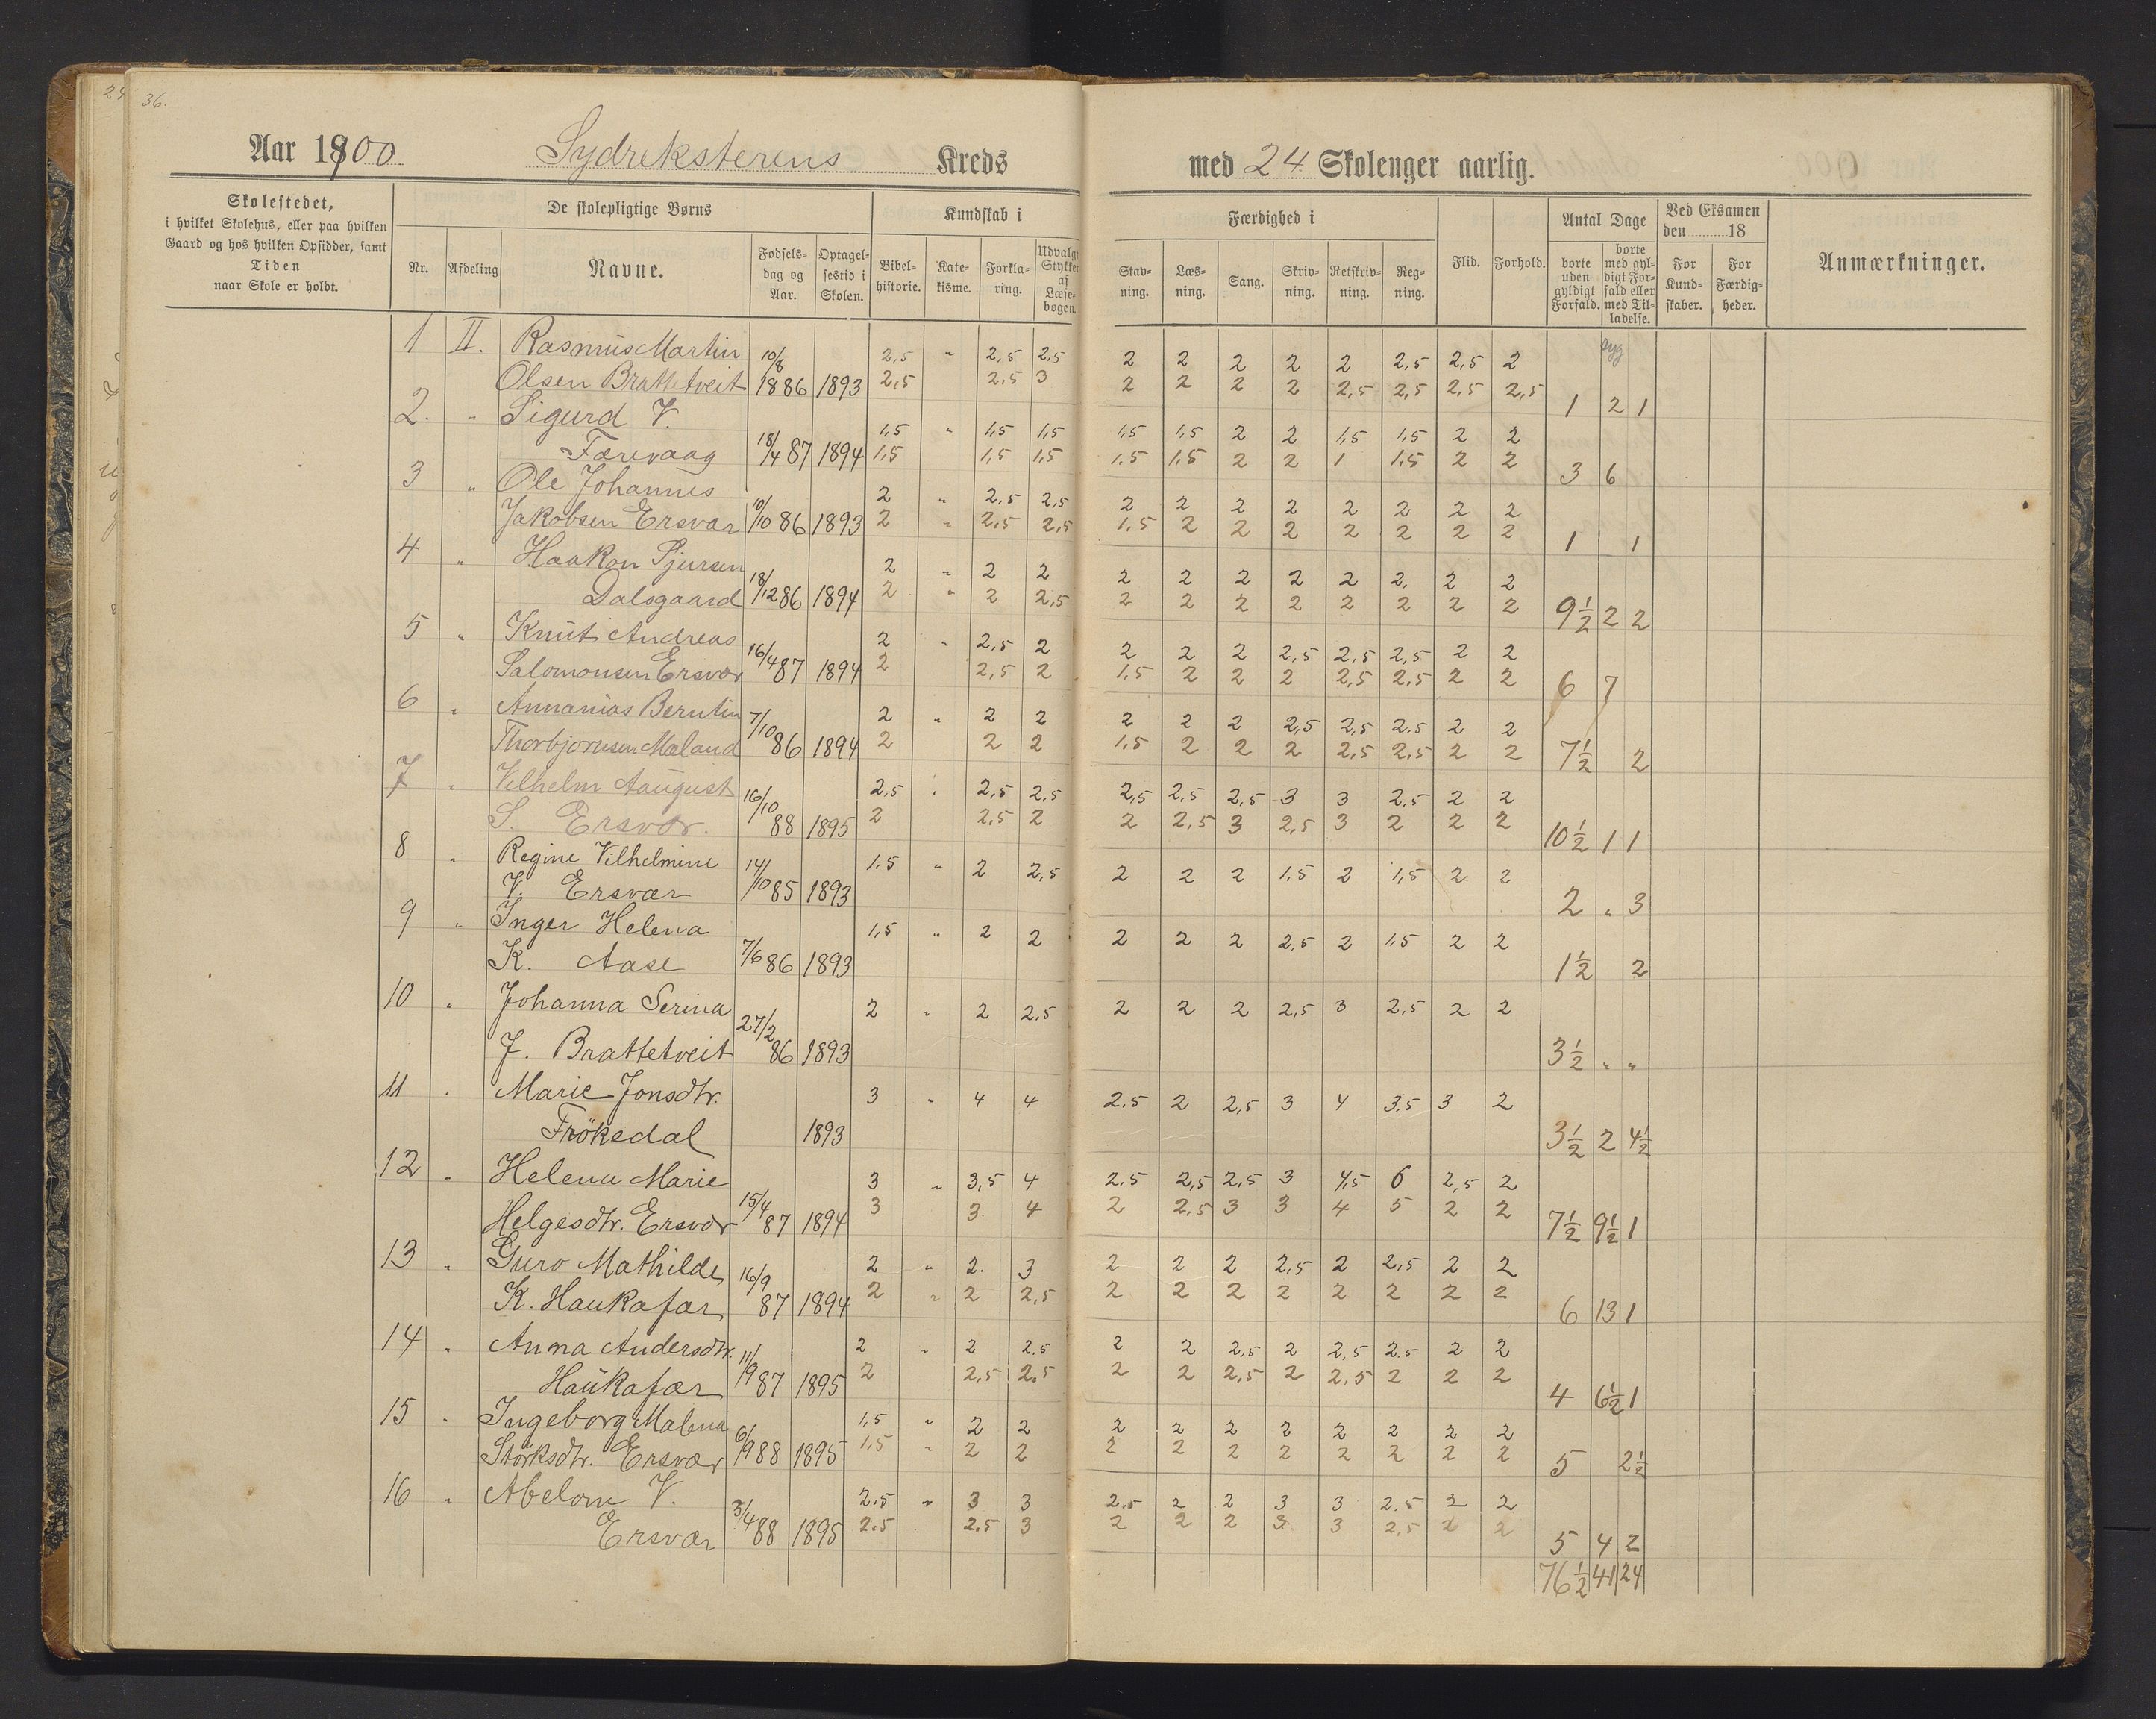 24 36.
Aar 1900 Sydreksterens Kreds med 24 Skolenger aarlig.
Skolestedet,
i hvilket Skolehus, eller paa hvilken
Gaard og hos hvilken Opsidder, samt
Tiden
naar Skole er holdt.
De skolepligtige Børns
Nr. Afdeling Navne. Fødsels-dag og Aar. Optagel-sestid i Skolen.
Kundskab i
Bibel-historie. Kate-kisme. Forkla-ring. Udvalgte Stykker af Læse-bogen.
Færdighed i
Stav-ning. Læs-ning. Sang. Skriv-ning. Retskriv-ning. Reg-ning. Flid. Forhold.
Antal Dage
borte uden gyldigt Forfald. borte med gyl-digt For-fald eller med Til-ladelse.
Ved Eksamen den 18
For Kund-skaber. For Færdig-heder.
Anmærkninger.
syg
1 II. Rasmus Martin 10/8 2,5 " 2,5 2,5 2 2 2 2 2 2,5 2,5 2
Olsen Brattetveit 1886 1893 2,5 2,5 3 2 2 2 2 2,5 2,5 2,5 2,5 1 2 1
2. " Sigurd V. 1,5 " 1,5 1,5 1,5 1,5 2 2 1,5 1,5 2 2
Færevaag 18/4 87 1894 1,5 1,5 1,5 1.5 1,5 2 2 1 1.5 2 2 3 6
3 " Ole Johannes 2 " 2,5 2,5 2 2 2 2 2 2 2 2
Jakobsen Ersvær 10/10 86 1893 2 " 2,5 2,5 1,5 2 2 2 2 2 2 2 1 1
4 " Haakon Sjursen 2 " 2 2 2 2 2 2 2 2, 2 2
Dalsgaard 18/12 86 1894 2 " 2 2,5 2 2 2 2 2 2 2 2 9½ 2 2
5 " Knut Andreas 2 " 2,5 2 2 2 2 2,5 2,5 2,5 2 2
Salomonsen Ersvær 16/4 87 1894 2 2,5 2 1,5 2 2 2 2,5 2,5 2 2 6 7
6 " Annanias Berntin 2 " 2 2 2 2 2 2,5 2,5 2.5 2 2
Thorbjørnsen Mæland 7/10 86 1894 2 2 2 1,5 2 2 2 2,5 2,5 2 2 7½ 2
7 " Vilhelm Aaugust 2,5 " 2,5 2,5 2,5 2,5 2,5 3 3 2,5 2 2
S. Ersvær. 16/10 88 1895 2 2,5 2 2 2,5 3 2,5 3 2 2 2 10½ 1 1
8 " Regine Vilhelmine 1,5 " 2 2,5 2 2 2 1,5 2 1,5 2 2
V. Ersvær 14/10 85 1893 2 " 3
9 " Inger Helena 1,5 " 2 2 2 2 2 2,5 2 1,5 2 2
K. Aase 7/6 86 1893 1½ 2
10 " Johanna Serina 2 " 2 2,5 2 2 2 2,5 3 2,5 2 2
J. Brattetveit 27/2 86 1893 3½ " "
11 " Marie Jonsdtr. 3 " 4 4 2.5 2 2,5 3 4 3.5 3 2
Frøksdal 1893 3½ 2 4½
12 " Helena Marie 3 " 3,5 4 2,5 2,5 2,5 3 4,5 6 2,5 2
Helgesdtr. Ersvær 15/4 87 1894 3 3 4 2 2,5 3 3 4 5 2 2 7½ 9½ 1
13 " Guro Mathilde 2 " 2. 3 2 2 2 2,5 2 2,5 2 2
K. Haukafær 16/9 87 1894 2 " 2 2,5 2 2 2 2 2 2 2 2 6 13 1
14 " Anna Andersdtr. 2 " 2 2.5 2 2 2,5 2 2,5 2.5 2 2
Haukafær 11/9 87 1895 2 2,5 2.5 2 2 2,5 2 2,5 2 2 2 4 6½ 1
15 " Ingeborg Malena 1,5 " 2 2 2 2 2 2 2 2 2 2
Storksdtr. Ersvær 6/9 88 1895 1,5 " 2 2 2 2 2 2 2 2 2 2 5 2½
16 " Abelone V. 2.5 " 3 3 2.5 2 2 3 3 2.5 2 2
Ersvær 3/4 88 1895 2.5 2.5 3 2 2 2 3 3 2,5 2 2 5 4 2
76½ 41 24